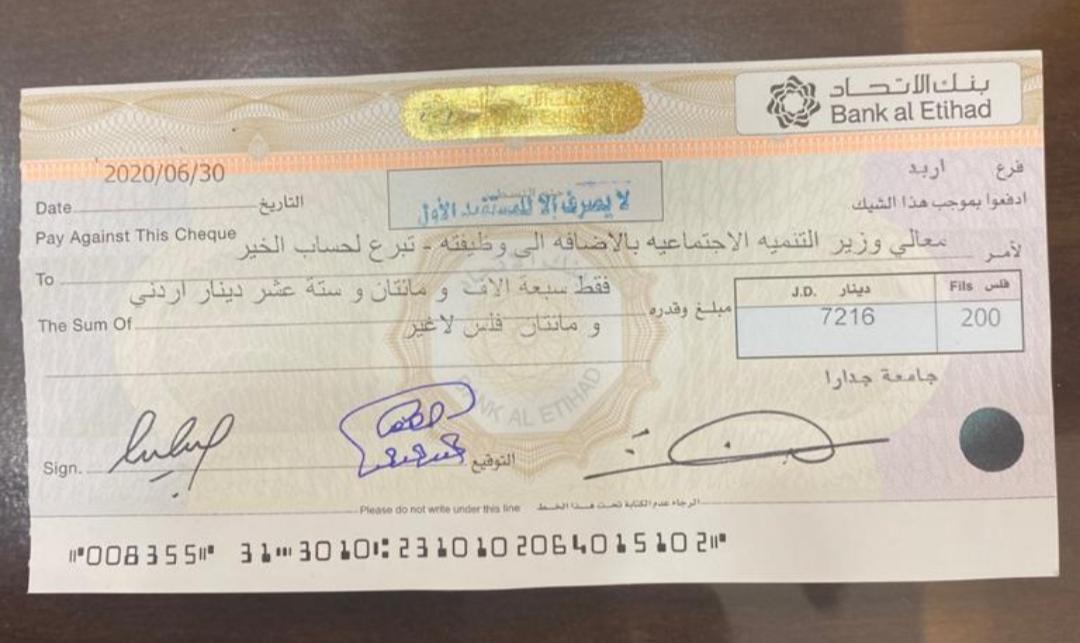 بنك الاتحاد
Bank al Etihad
2020/06/30
Date
التاريخ
فرع
اربد
لا يصرف إلا للمستفيد الأول
ادفعوا بموجب هذا الشيك
Pay Against This Cheque
لأمر
معالي وزير التنميه الاجتماعيه بالاضافه الى وظيفته - تبرع لحساب الخير
To
فقط سبعة الاف و مائتان و ستة عشر دينار اردني
مبلغ وقدره
دينار J.D.
فلس Fils
7216
200
The Sum Of
و مائتان فلس لاغير
جامعة جدارا
BANK AL ETIHAD
Sign.
التوقيع
Please do not write under this line
الرجاء عدم الكتابة تحت هذا الخط
⑈008355⑈ 31⑉3010⑆ 2310102064015102⑈